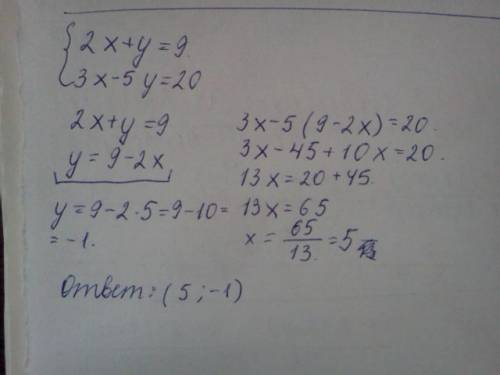 {2x+y=9.
3x-5y=20
2x+y=9
y=9-2x
y=9-2·5=9-10=
=-1.
3x-5(9-2x)=20.
3x-45+10x=20.
13x=20+45.
13x=65
x=65/13.=5
Ответ: (5;-1)